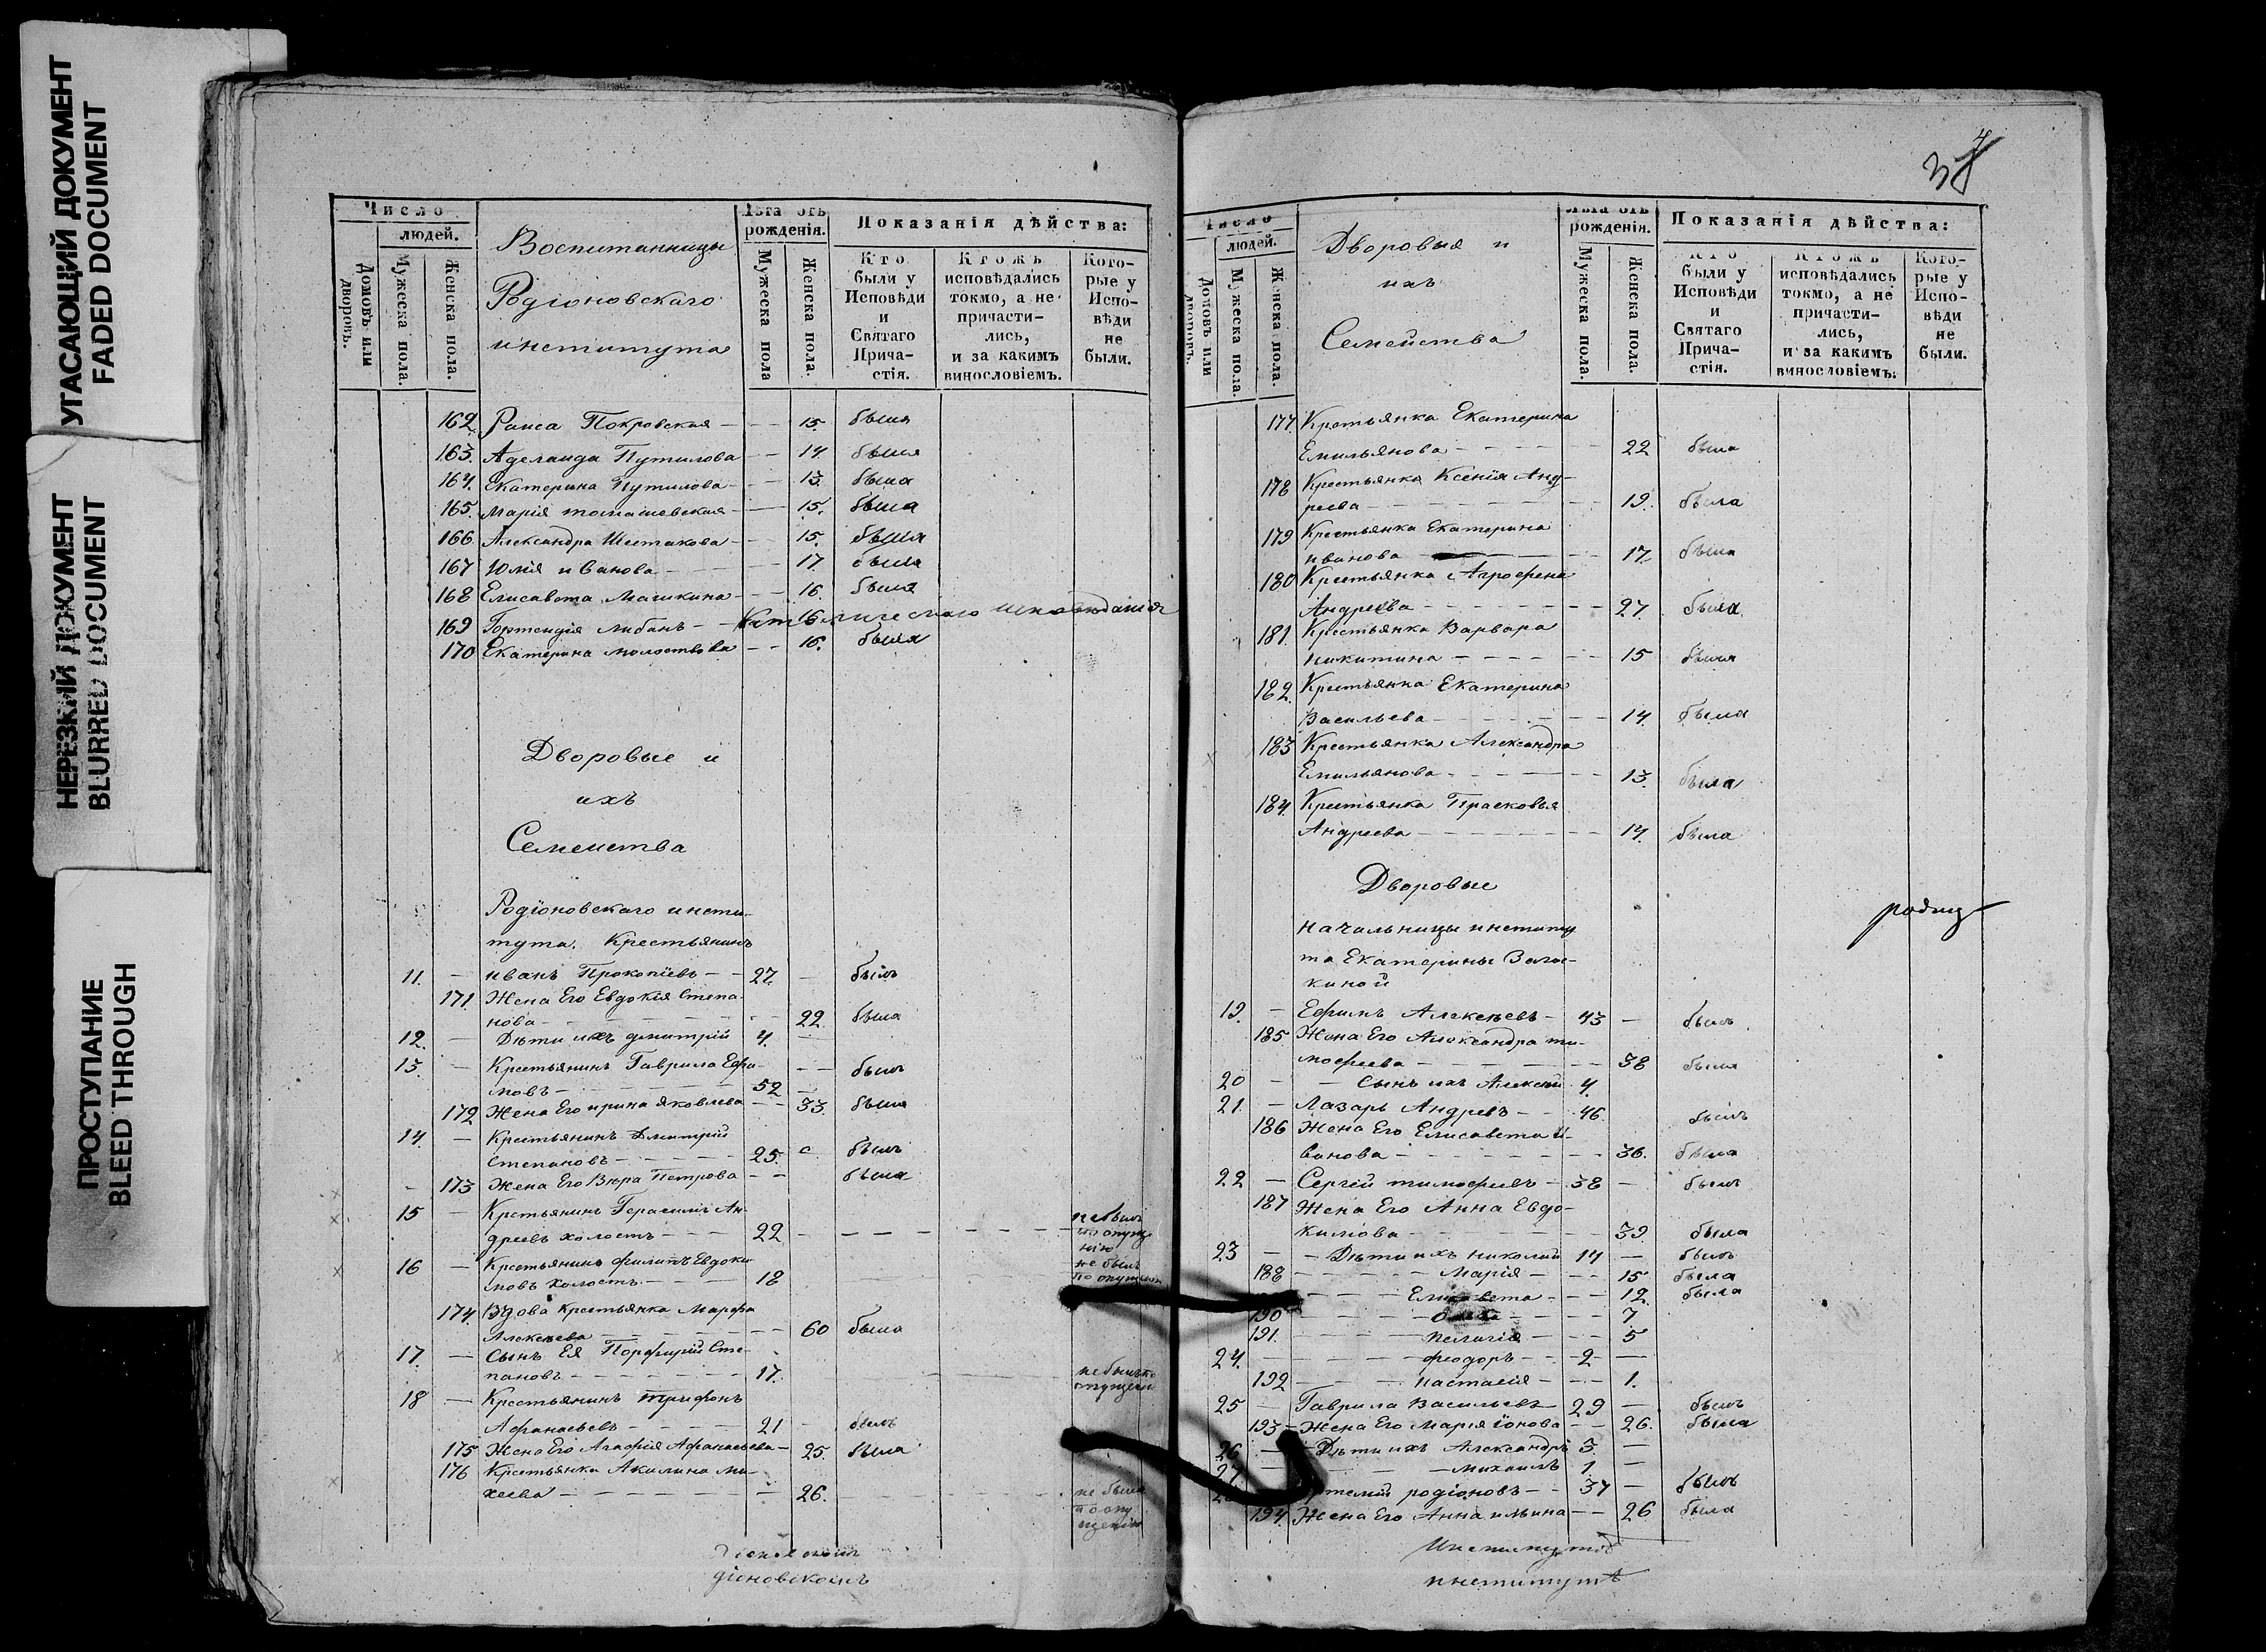 УГАСАЮЩИЙ ДОКУМЕНТ
FADED DOCUMENT
НЕРЕЗКИЙ ДОКУМЕНТ
BLURRED DOCUMENT
ПРОСТУПАНИЕ
BLEED THROUGH
Число
людей.
Домовъ или дворовъ.
Мужеска пола.
Женска пола.
Воспитанницы
Родіоновскаго
института
Лѣта отъ
рожденія.
Мужеска пола
Женска пола.
Показанія дѣйства:
Кто
были у
Исповѣди
и
Святаго
Прича-
стія.
Ктожъ
исповѣдались
токмо, а не
причасти-
лись,
и за какимъ
винословіемъ.
Кото-
рые у
Испо-
вѣди
не
были.
162. Раиса Покровская - - 15 была
163. Аделаида Путилова - - 14 была
164. Екатерина Путилова - - 13. была
165. Марія Томашевская - - 15. была
166. Александра Шестакова - - 15. была
167 Юлія Иванова - - 17. была
168 Елисавета Машкина - - 16. была
169 Гортензія Либанъ - - 16 Католическаго исповѣданія
170 Екатерина Молоствова - - 16. была
Дворовые и
ихъ
Семейства
Родіоновскаго инсти-
тута. Крестьянинъ
11. - Иванъ Прокопіевъ - - 27. - былъ
171. Жена Его Евдокія Степа-
нова - - 22. была
12. - Дѣти ихъ Дмитрій 4. -
13. - Крестьянинъ Гаврила Ефи-
мовъ - 52 - былъ
172 Жена Его Ирина Яковлева - - 33. была
14. - Крестьянинъ Дмитрій
Степановъ - 25. былъ
173 Жена Его Вѣра Петрова - - была
15 - Крестьянинъ Герасимъ Ан-
дреевъ холостъ - 22 - не былъ
по опуще
нію
16 - Крестьянинъ Филипъ Евдоки
мовъ холостъ - 18 не былъ
по опущен
174 Вдова крестьянка Марфа
Алексѣева - - 60 была
17. - Сынъ Ея Порфирій Сте-
пановъ - 17. не былъ по
опущен
18 - Крестьянинъ Трифонъ
Афанасьевъ - 21 - былъ
175 Жена Его Агафія Афанасьева - 25. была
176 Крестьянка Акилина Ми-
хеева - - 26. не была
по опу
щенію
діоновскомъ
Число
людей.
Домовъ или дворовъ.
Мужеска пола.
Женска пола.
Дворовыя и
ихъ
Семейства
Лѣта отъ
рожденія.
Мужеска пола.
Женска пола.
Показанія дѣйства:
Кто
были у
Исповѣди
и
Святаго
Прича-
стія.
Ктожъ
исповѣдались
токмо, а не
причасти-
лись,
и за какимъ
винословіемъ.
Кото-
рые у
Испо-
вѣди
не
были.
177. Крестьянка Екатерина
Емильянова - - 22 была
178 Крестьянка Ксенія Анд-
реева - - 19. была
179 Крестьянка Екатерина
Иванова - - 17. была
180 Крестьянка Агрофена
Андреева - - 27. была
181. Крестьянка Варвара
Никитина - - 15 была
182. Крестьянка Екатерина
Васильева - - 14. была
183 Крестьянка Александра
Емильянова - - 13. была
184. Крестьянка Прасковья
Андреева - - 14. была
Дворовые
начальницы институ
та Екатерины Загос-
киной
19. - Ефимъ Алексѣевъ - 43 - былъ
185 Жена Его Александра Ти-
мофеева - - 38 была
20 - - Сынъ ихъ Алексѣй 4.
21. - Лазарь Андреевъ - - 46. былъ
186 Жена Его Елисавета И-
ванова - - 36. была
22 - Сергей Тимофеевъ - 38 - былъ
187 Жена Его Анна Евдо-
кимова - - 39 была
23 - - Дѣти ихъ Николай 14 - былъ
188 - Марія - - 15 была
- Елисавета - - 12. была
190 - - 7
191. - Пелагія - - 5
24. - Феодоръ - 2 -
192 - Настасія - - 1.
25 - Гаврила Васильевъ 29 - былъ
193 - Жена Его Марія Іонова - - 26. была
26 - - Дѣти ихъ Александръ 3 -
27 - Михаилъ 1 -
Артемій Родіоновъ - - 37 - былъ
194. Жена Его Анна Ильина - - 26 была
институтѣ